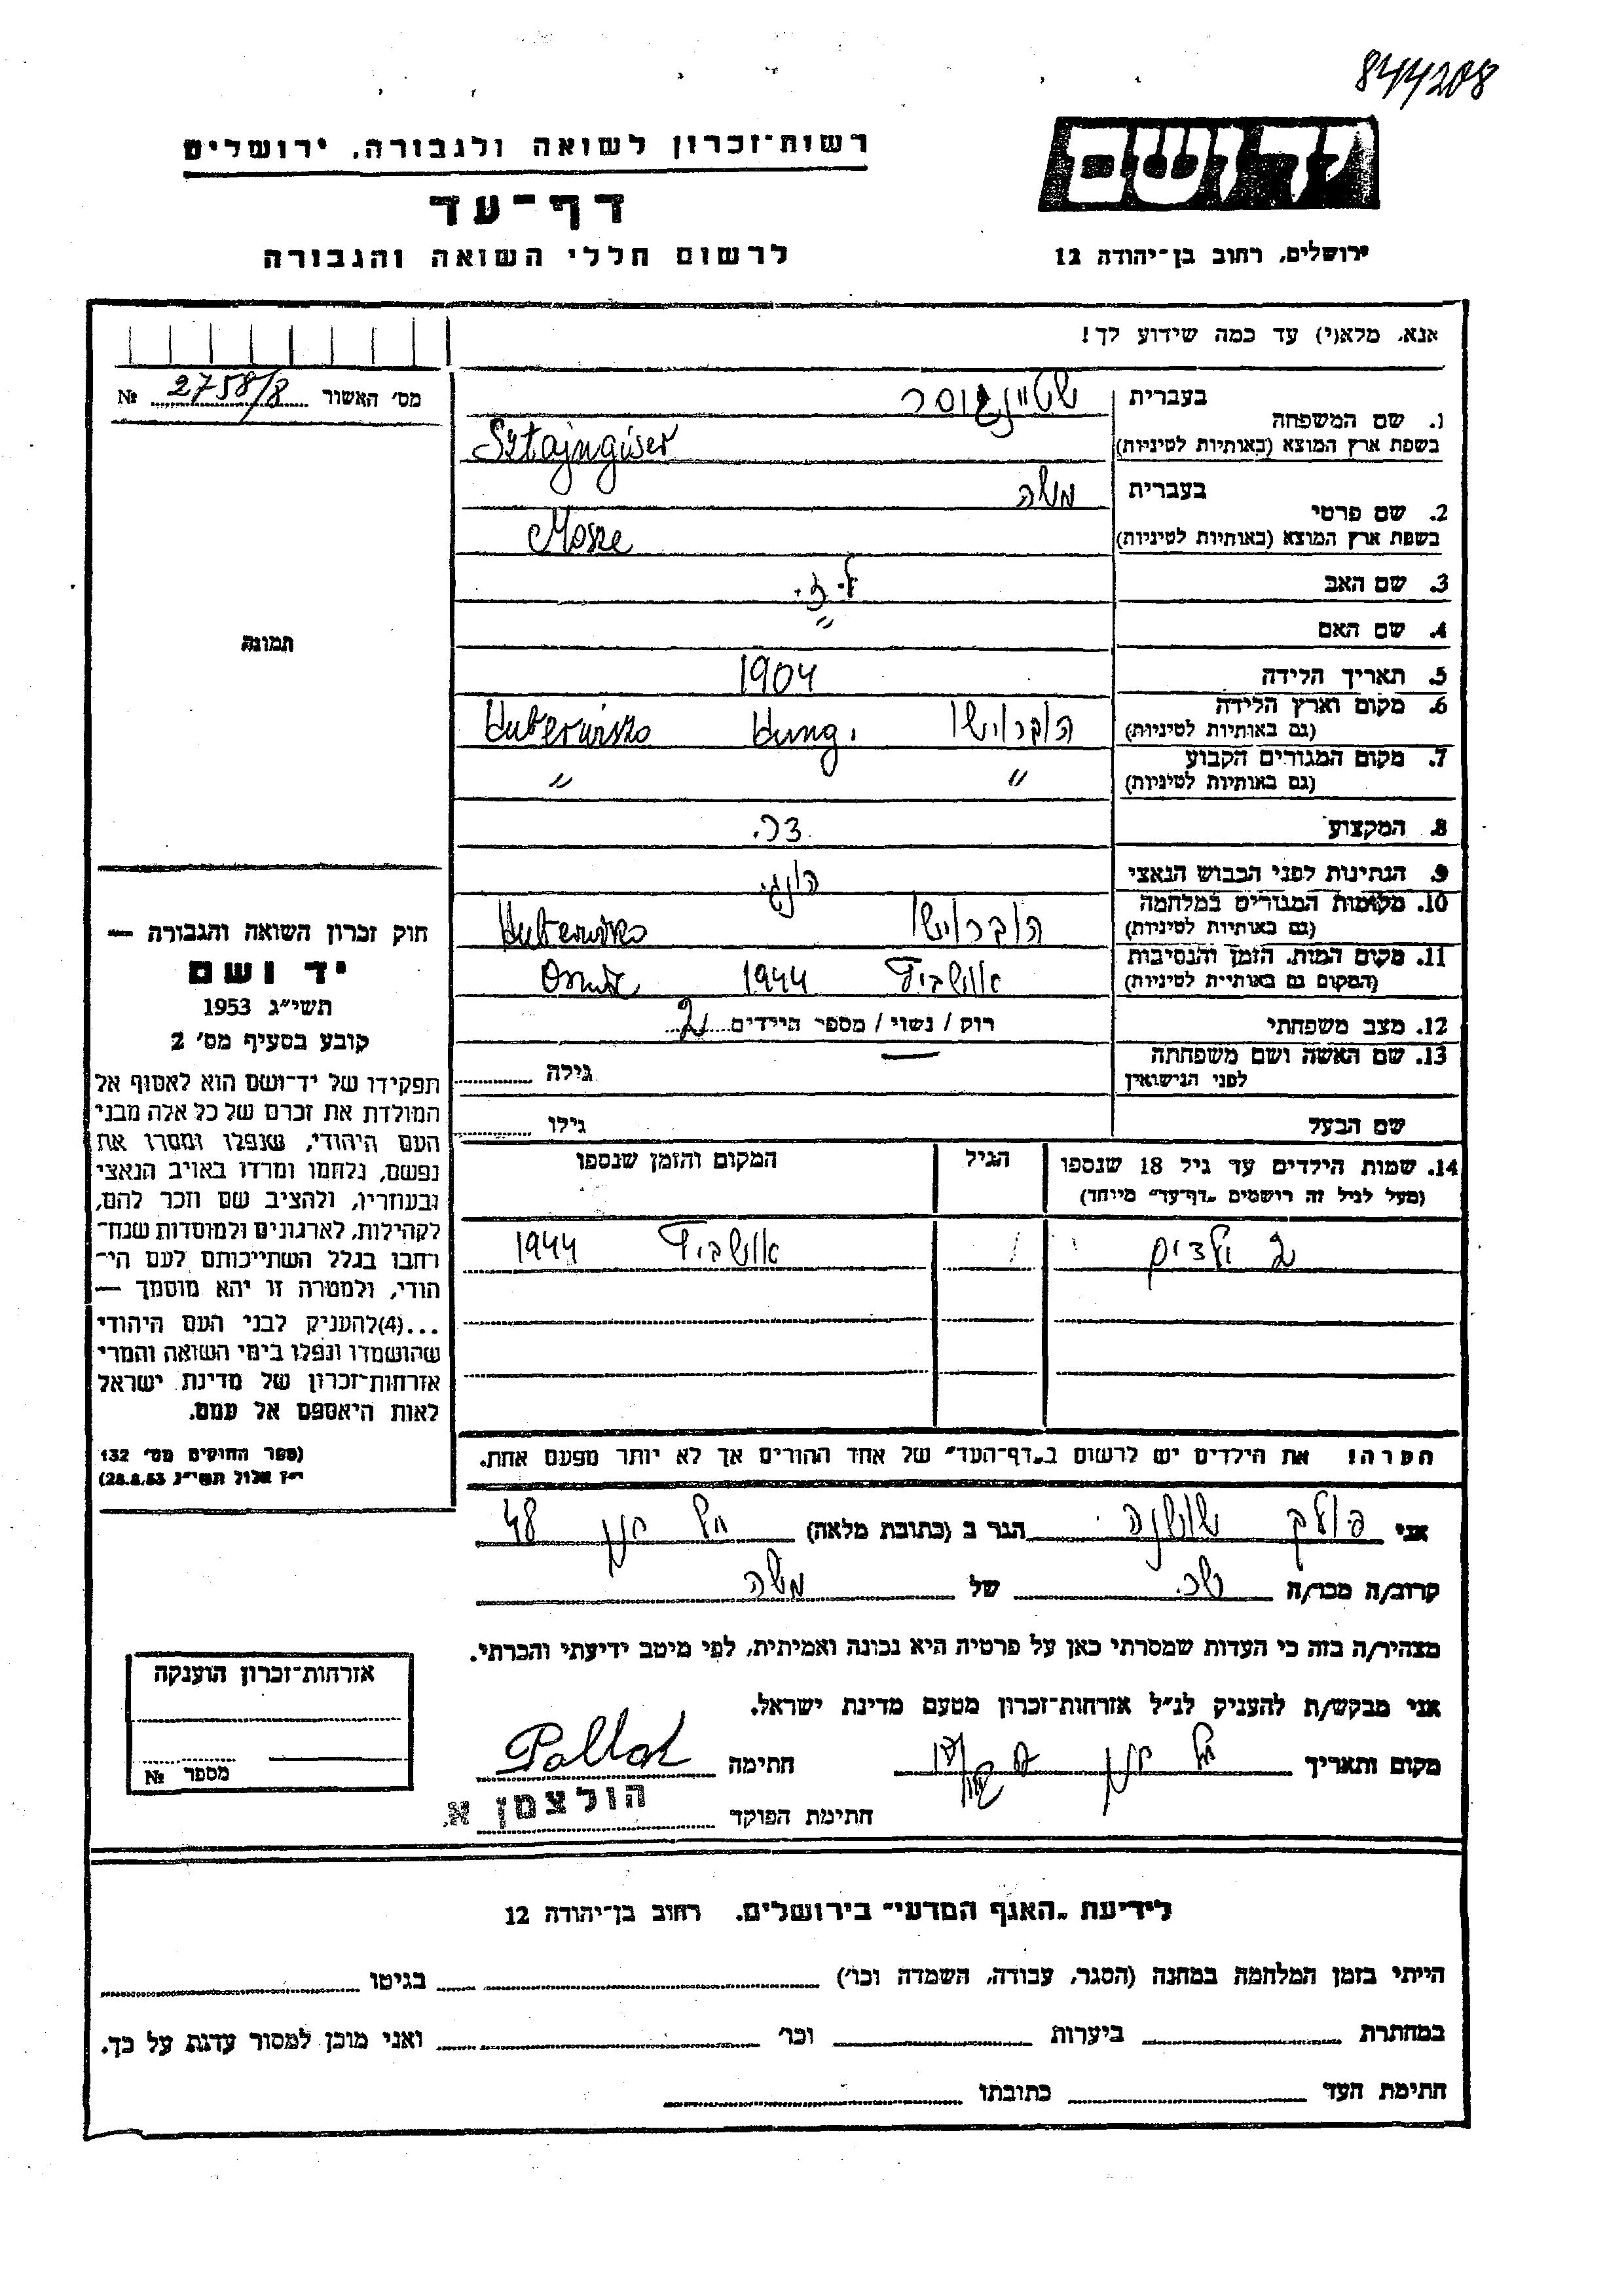 844208
רשות־זכרון לשואה ולגבורה, ירושלים
יד ושם
דף־עד
לרשום חללי השואה והגבורה
ירושלים, רחוב בן־יהודה 12
אנא, מלא(י) עד כמה שידוע לך!
מס' האשור 2758/8 №
1. שם המשפחה בעברית שטיינגיסר
בשפת ארץ המוצא (באותיות לטיניות) Sztajngiser
2. שם פרטי בעברית משה
בשפת ארץ המוצא (באותיות לטיניות) Mosze
3. שם האב ל. י.
4. שם האם "
תמונה
5. תאריך הלידה 1904
6. מקום וארץ הלידה
(גם באותיות לטיניות) Hung.
7. מקום המגורים הקבוע
(גם באותיות לטיניות) " "
8. המקצוע
9. הנתינות לפני הכבוש הנאצי הונג.
10. מקומות המגורים במלחמה
(גם באותיות לטיניות)
11. מקום המות, הזמן והנסיבות
(המקום גם באותיות לטיניות) אושביץ 1944
12. מצב משפחתי רוק / נשוי / מספר הילדים 2
13. שם האשה ושם משפחתה
לפני הנישואין גילה
שם הבעל גילו
14. שמות הילדים עד גיל 18 שנספו הגיל המקום והזמן שנספו
(מעל לגיל זה רושמים „דף־עד" מיוחד)
2 ילדים אושביץ 1944
הערה! את הילדים יש לרשום ב„דף־העד" של אחד ההורים אך לא יותר מפעם אחת.
חוק זכרון השואה והגבורה —
יד ושם
תשי״ג 1953
קובע בסעיף מס' 2
תפקידו של יד־ושם הוא לאסוף אל
המולדת את זכרם של כל אלה מבני
העם היהודי, שנפלו ומסרו את
נפשם, נלחמו ומרדו באויב הנאצי
ובעוזריו, ולהציב שם וזכר להם,
לקהילות, לארגונים ולמוסדות שנח־
רבו בגלל השתייכותם לעם הי־
הודי, ולמטרה זו יהא מוסמך —
...(4)להעניק לבני העם היהודי
שהושמדו ונפלו בימי השואה והמרי
אזרחות־זכרון של מדינת ישראל
לאות היאספם אל עמם.
(ספר החוקים מס' 132
י״ז אלול תשי״ג 28.8.53)
אני פולק שושנה הגר ב (כתובת מלאה) 48
קרוב/ה מכר/ה של משה
מצהיר/ה בזה כי העדות שמסרתי כאן על פרטיה היא נכונה ואמיתית, לפי מיטב ידיעתי והכרתי.
אני מבקש/ת להעניק לנ״ל אזרחות־זכרון מטעם מדינת ישראל.
מקום ותאריך חתימה Pollak
חתימת הפוקד הולצמן א.
אזרחות־זכרון הוענקה
מספר №
לידיעת „האגף המדעי" בירושלים, רחוב בן־יהודה 12
הייתי בזמן המלחמה במחנה (הסגר, עבודה, השמדה וכו') בגיטו
במחתרת ביערות וכו' ואני מוכן למסור עדות על כך.
חתימת העד כתובתו